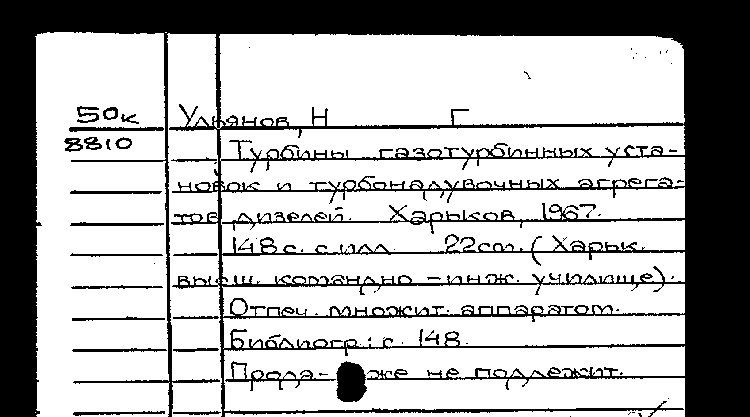 50к Ульянов, Н Г
8810 Турбины газотурбинных уста-
новок и турбонадувочных агрега-
тов дизелей. Харьков, 1967.
148 с. с илл. 22 см. (Харьк.
высш. командно-инж. училище).
Отпеч. множит. аппаратом.
Библиогр.: с. 148.
Прода- же не подлежит.